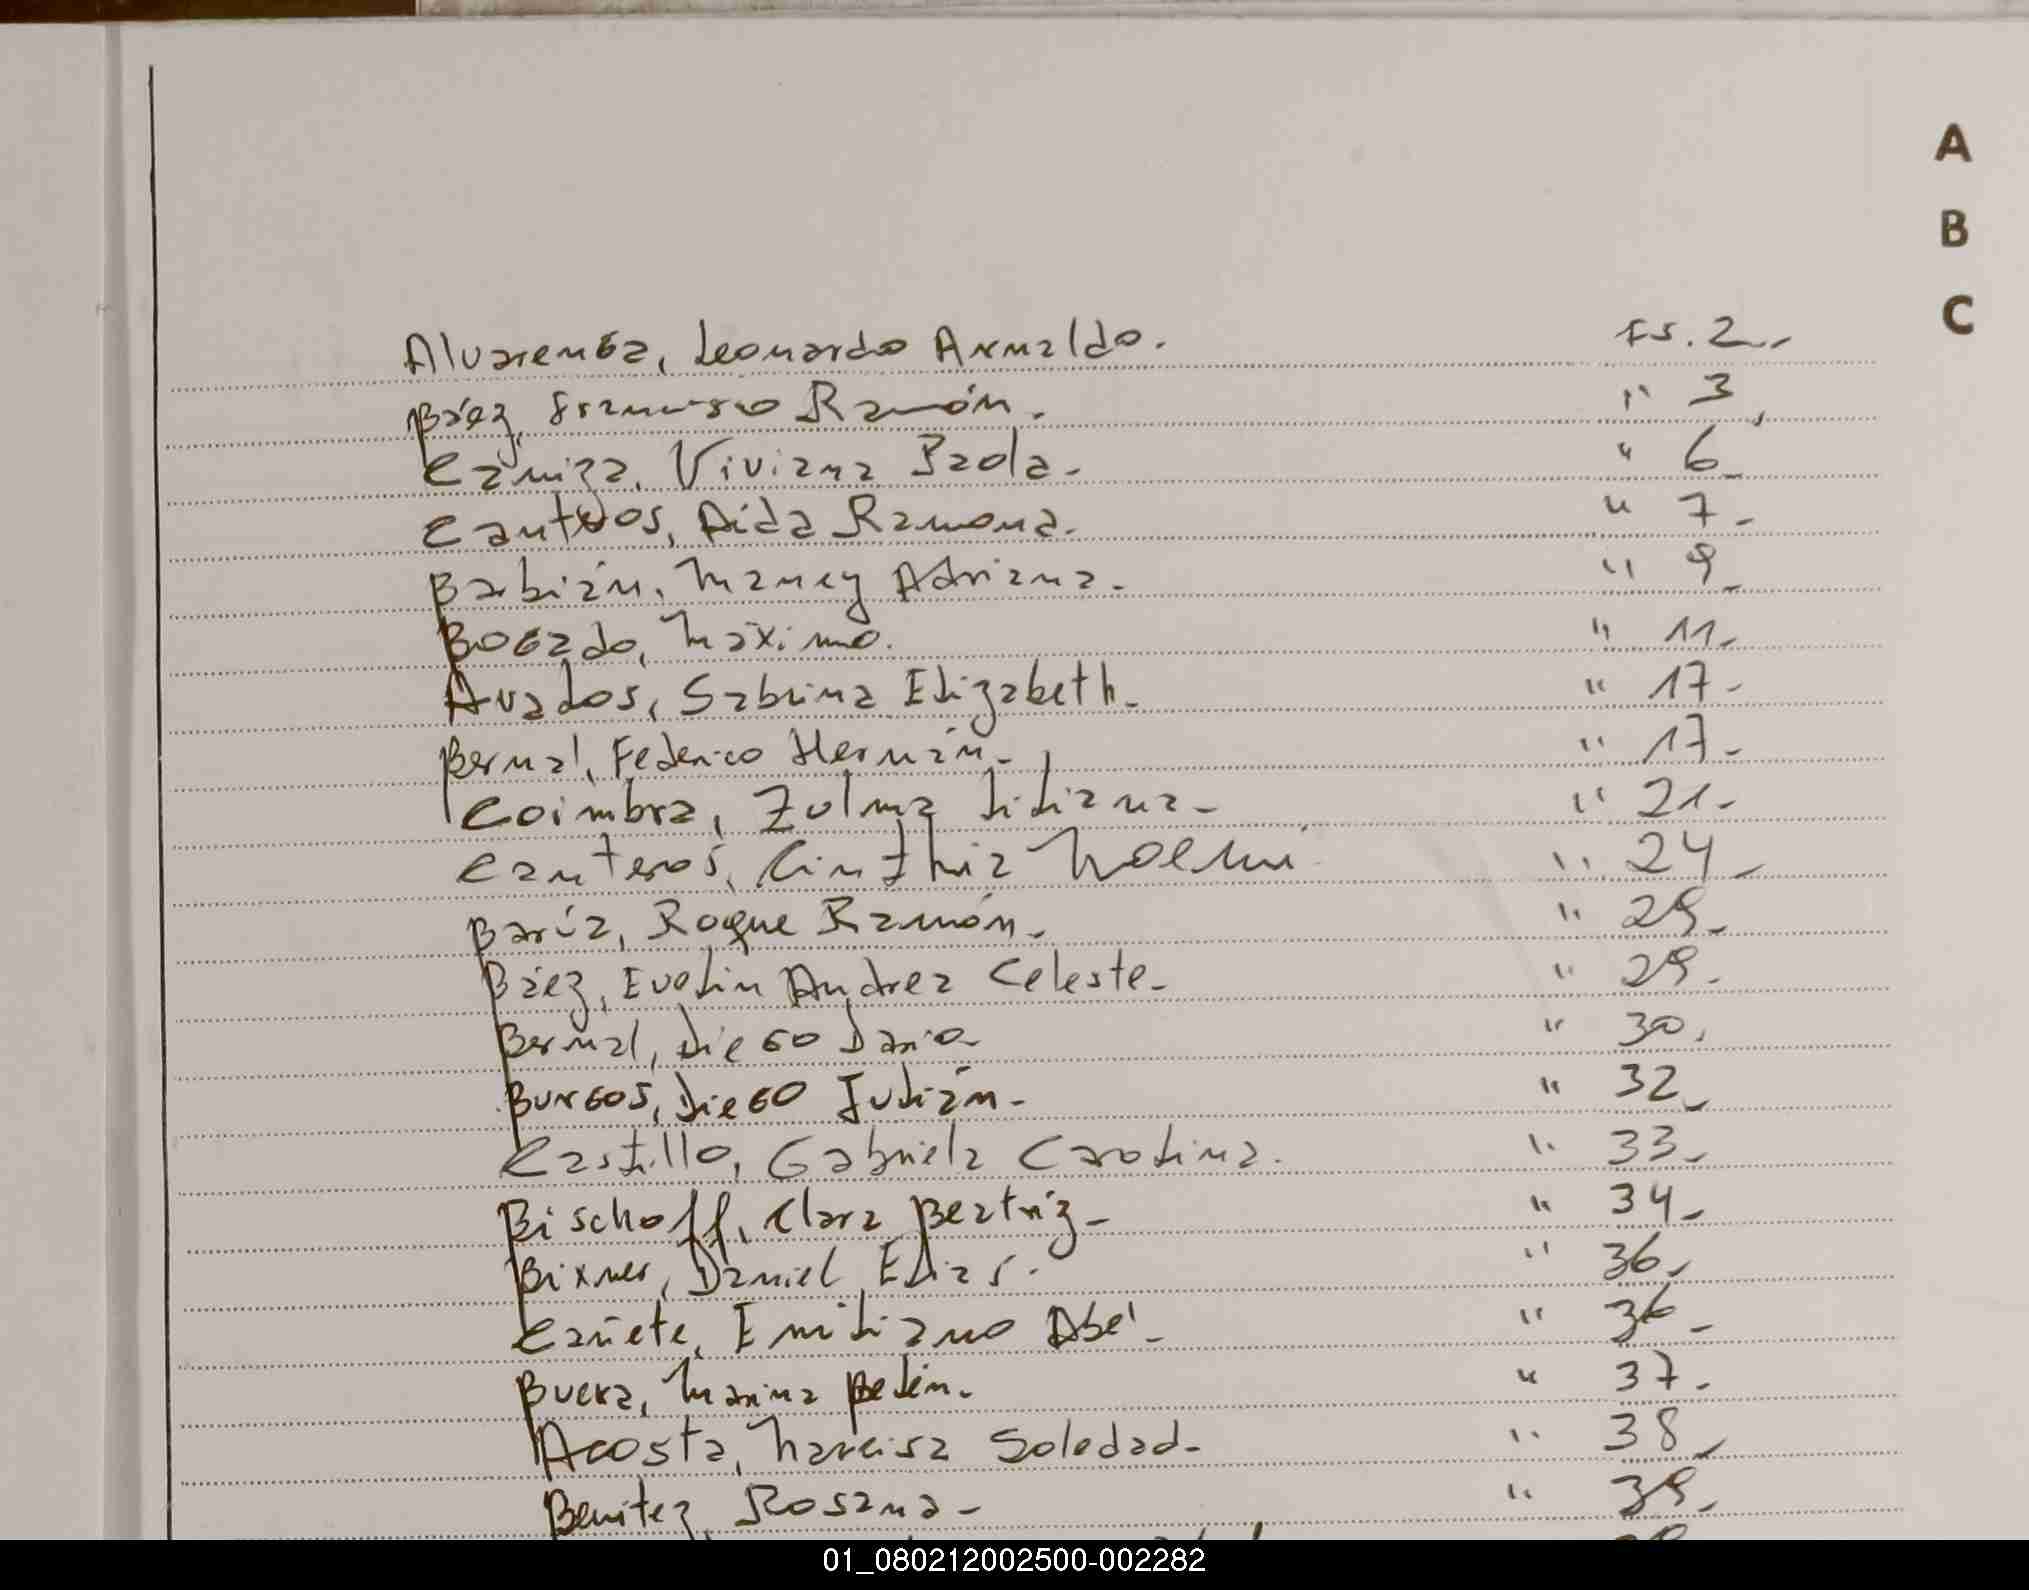 A
B
C
Alvarenga, Leonardo Arnaldo. Fs. 2.
Báez, Francisco Ramón. " 3.
Caniza, Viviana Paola. " 6.
Canteros, Aida Ramona. " 7.
Barbián, Nancy Adriana. " 9.
Bogado, Máximo. " 11.
Avalos, Sabrina Elizabeth. " 17.
Bernal, Federico Hernán. " 17.
Coimbra, Zulma Liliana. " 21.
Canteros, Cinthia Noemí " 24.
Barúa, Roque Ramón. " 29.
Báez, Evelin Andrea Celeste. " 29.
Bernal, Diego Dario. " 30.
Burgos, Diego Julián. " 32.
Castillo, Gabriela Carolina. " 33.
Bischoff, Clara Beatriz. " 34.
Bixner, Daniel Elias. " 36.
Cañete, Emiliano Abel. " 36.
Buera, Marina Belén. " 37.
Acosta, Narcisa Soledad. " 38.
Benitez, Rosana. " 39.
01_080212002500-002282